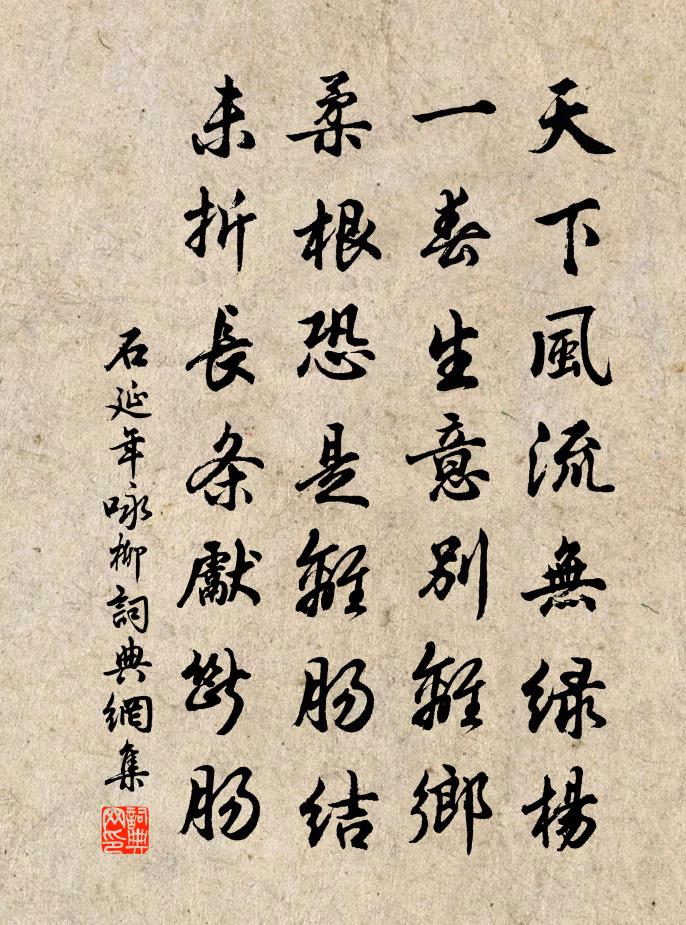 天下風流無緑楊
一春生意別離鄉
柔根恐是離腸結
未折長条獻斷腸
石延年咏柳詞典網集
詞典
网印